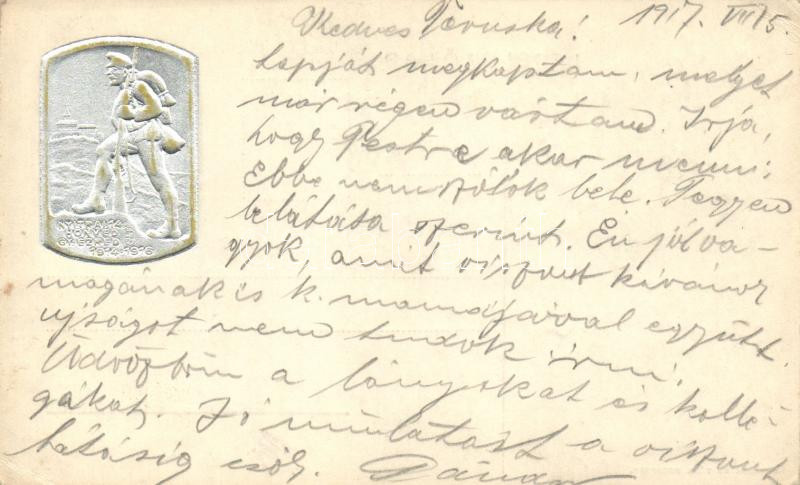 1917. VII/5.
Kedves Teruska!
Lapját megkaptam, melyet
már régen vártam. Irja,
hogy Pestre akar menni;
Ebbe nem szólok bele. Tegyen
belátása szerint. Én jól va-
gyok, amit viszont kivánok
magának is k. mamájával együtt.
ujságot nem tudok irni.
Üdvözlöm a lányokat és kollé-
gákat. Jó mulatást a viszont
látásig csók.
1914-1916